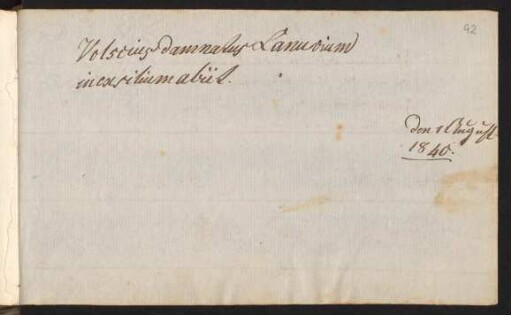 92
Volscius damnatus Lanuvium
in exsilium abiit.
den 1 August
1840.